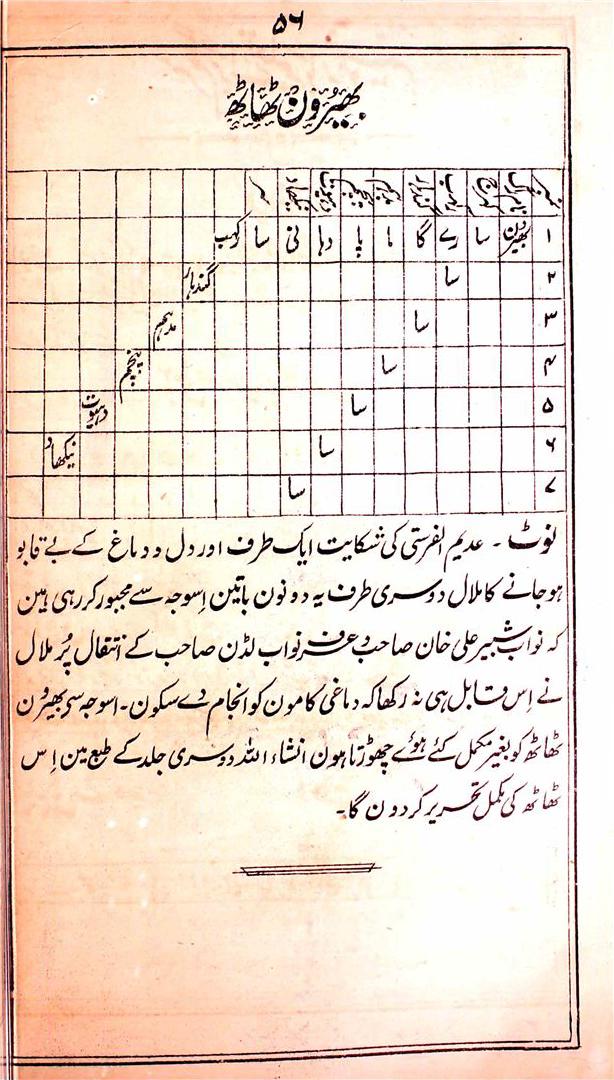 ۵۶
بھیرون ٹھاٹھ
نمبر نام راگ کھرج رکھب گندہار مدہم پنچم دہیوت نیکھاد سر
۱ بھیرون سا رے گا ما پا دہا نی سا رکھب
۲ سا گندہار
۳ سا مدہم
۴ سا پنچم
۵ سا دہیوت
۶ سا نیکھاد
۷ سا
نوٹ ۔ عدیم الفرستی کی شکایت ایک طرف اور دل و دماغ کے بے قابو
ہو جانے کا ملال دوسری طرف یہ دونون باتین اسوجہ سے مجبور کر رہی ہین
کہ نواب شبیر علی خان صاحب وعرف نواب لڈن صاحب کے انتقال پُر ملال
نے اِس قابل ہی نہ رکھا کہ دماغی کامون کو انجام دے سکون۔ اسوجہ سے بھیرون
ٹھاٹھ کو بغیر مکمل کئے ہوئے چھوڑتا ہون انشاء اللہ دوسری جلد کے طبع مین اِس
ٹھاٹھ کی مکمل تحریر کر دون گا۔